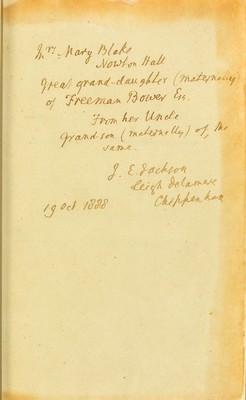 Mrs. Mary Blake
Newton Hall
Great grand-daughter (maternally)
of Freeman Bower Esq.
From her Uncle
Grandson (maternally) of, the
same.
J. E. Jackson
Leigh Delamere
Chippenham
19 Oct 1888